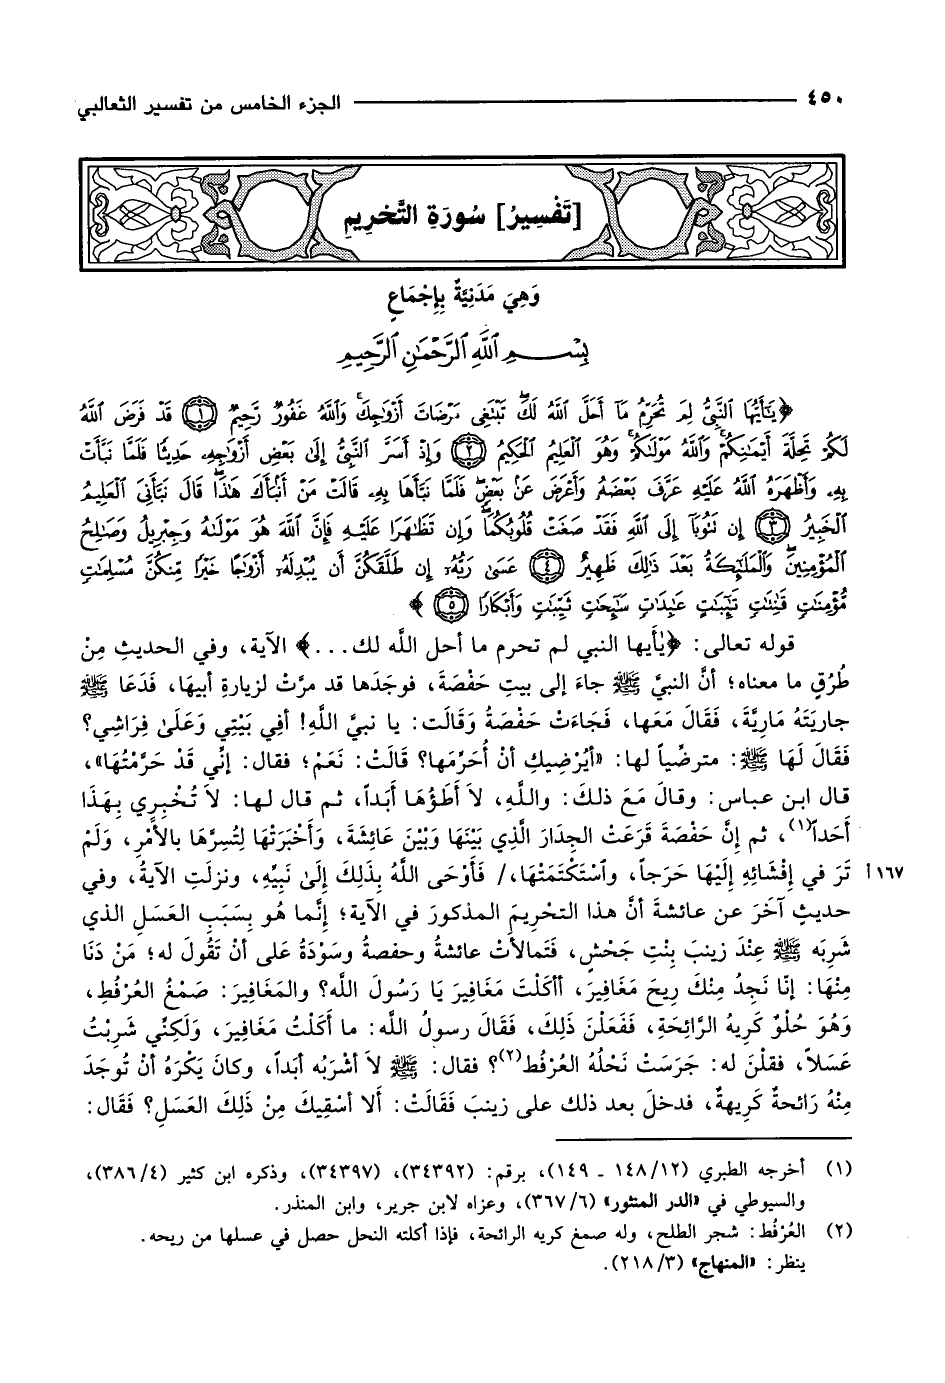 ٤٥٠ الجزء الخامس من تفسير الثعالبي
[تَفْسِيرُ] سُورَةِ التَّحْرِيمِ
وَهِيَ مَدَنِيَّةٌ بِإجْمَاعٍ
بِسْمِ ٱللَّهِ ٱلرَّحْمَٰنِ ٱلرَّحِيمِ
﴿يَٰٓأَيُّهَا ٱلنَّبِيُّ لِمَ تُحَرِّمُ مَآ أَحَلَّ ٱللَّهُ لَكَۖ تَبْتَغِى مَرْضَاتَ أَزْوَٰجِكَۚ وَٱللَّهُ غَفُورٌ رَّحِيمٌ ۝١ قَدْ فَرَضَ ٱللَّهُ
لَكُمْ تَحِلَّةَ أَيْمَٰنِكُمْۚ وَٱللَّهُ مَوْلَىٰكُمْۖ وَهُوَ ٱلْعَلِيمُ ٱلْحَكِيمُ ۝٢ وَإِذْ أَسَرَّ ٱلنَّبِيُّ إِلَىٰ بَعْضِ أَزْوَٰجِهِۦ حَدِيثًا فَلَمَّا نَبَّأَتْ
بِهِۦ وَأَظْهَرَهُ ٱللَّهُ عَلَيْهِ عَرَّفَ بَعْضَهُۥ وَأَعْرَضَ عَنۢ بَعْضٍۖ فَلَمَّا نَبَّأَهَا بِهِۦ قَالَتْ مَنْ أَنۢبَأَكَ هَٰذَاۖ قَالَ نَبَّأَنِىَ ٱلْعَلِيمُ
ٱلْخَبِيرُ ۝٣ إِن تَتُوبَآ إِلَى ٱللَّهِ فَقَدْ صَغَتْ قُلُوبُكُمَاۖ وَإِن تَظَٰهَرَا عَلَيْهِ فَإِنَّ ٱللَّهَ هُوَ مَوْلَىٰهُ وَجِبْرِيلُ وَصَٰلِحُ
ٱلْمُؤْمِنِينَۖ وَٱلْمَلَٰٓئِكَةُ بَعْدَ ذَٰلِكَ ظَهِيرٌ ۝٤ عَسَىٰ رَبُّهُۥٓ إِن طَلَّقَكُنَّ أَن يُبْدِلَهُۥٓ أَزْوَٰجًا خَيْرًا مِّنكُنَّ مُسْلِمَٰتٍ
مُّؤْمِنَٰتٍ قَٰنِتَٰتٍ تَٰٓئِبَٰتٍ عَٰبِدَٰتٍ سَٰٓئِحَٰتٍ ثَيِّبَٰتٍ وَأَبْكَارًا ۝٥﴾
قوله تعالى: ﴿يٰأيها النبي لم تحرم ما أحل اللَّه لك...﴾ الآية، وفي الحديثِ مِنْ
طُرُقٍ ما معناه؛ أنَّ النبيَّ ﷺ جاءَ إلى بيتِ حَفْصَةَ، فوجَدَها قد مرَّتْ لزيارةِ أبيهَا، فَدَعَا ﷺ
جاريَتَهُ مَارِيَّةَ، فَقَالَ مَعَها، فَجَاءَتْ حَفْصَةُ وَقَالَت: يا نبيَّ اللهِ! أفِي بَيْتِي وَعَلَىٰ فِرَاشِي؟
فَقَالَ لَهَا ﷺ: مترضِّياً لها: «أيُرْضِيكِ أنْ أُحَرِّمَها؟ قالَتْ: نَعَمْ؛ فقال: إنِّي قَدْ حَرَّمْتُهَا»،
قال ابن عباس: وقالَ مَعَ ذلكَ: واللَّهِ، لاَ أَطَؤُهَا أبَداً، ثم قال لها: لاَ تُخْبِرِي بِهَذَا
أحَداً(١)، ثم إنَّ حَفْصَةَ قَرَعَتْ الجِدَارَ الَّذِي بَيْنَهَا وَبَيْنَ عَائِشَةَ، وَأخْبَرَتْهَا لِتُسِرَّهَا بالأمْرِ، وَلَمْ
تَرَ في إفْشَائِهِ إلَيْهَا حَرَجاً، وٱسْتَكْتَمَتْهَا،/ فَأَوْحَى اللَّهُ بِذَلِكَ إلَىٰ نَبِيِّهِ، ونزلتِ الآيةُ، وفي ١٦٧أ
حديثٍ آخَرَ عن عائشةَ أنَّ هذا التحْرِيمَ المذكورَ في الآية؛ إنَّما هو بِسَبَبِ العَسَلِ الذي
شَرِبَه ﷺ عِنْدَ زينبَ بِنْتِ جَحْشٍ، فَتمالأَتْ عائشةُ وحفصةُ وسَوْدَةُ عَلى أنْ تَقُولَ له؛ مَنْ دَنَا
مِنْهَا: إنّا نَجِدُ مِنْكَ رِيحَ مَغَافِيرَ، أأكَلْتَ مَغَافِيرَ يَا رَسُولَ اللَّه؟ والمَغَافِيرَ: صَمْغُ العُرْفُطِ،
وَهُوَ حُلْوٌ كَرِيهُ الرَّائِحَةِ، فَفَعَلْنَ ذَلِكَ، فَقَالَ رسولُ اللَّه: ما أَكَلْتُ مَغَافِيرَ، وَلَكِنِّي شَرِبْتُ
عَسَلاً، فقلْنَ له: جَرَسَتْ نَحْلُهُ العُرْفُطَ(٢)؟ فقال: ﷺ لاَ أشْرَبُه أبَداً، وكانَ يَكْرَهُ أنْ تُوجَدَ
مِنْهُ رَائحةٌ كَرِيهةٌ، فدخلَ بعد ذلك على زينبَ فَقَالَتْ: ألا أسْقِيكَ مِنْ ذَلِكَ العَسَلِ؟ فَقَال:
(١) أخرجه الطبري (١٤٨/١٢ - ١٤٩)، برقم: (٣٤٣٩٢)، (٣٤٣٩٧)، وذكره ابن كثير (٣٨٦/٤)،
والسيوطي في «الدر المنثور» (٣٦٧/٦)، وعزاه لابن جرير، وابن المنذر.
(٢) العُرْفُط: شجر الطلح، وله صمغ كريه الرائحة، فإذا أكلته النحل حصل في عسلها من ريحه.
ينظر: «المنهاج» (٢١٨/٣).